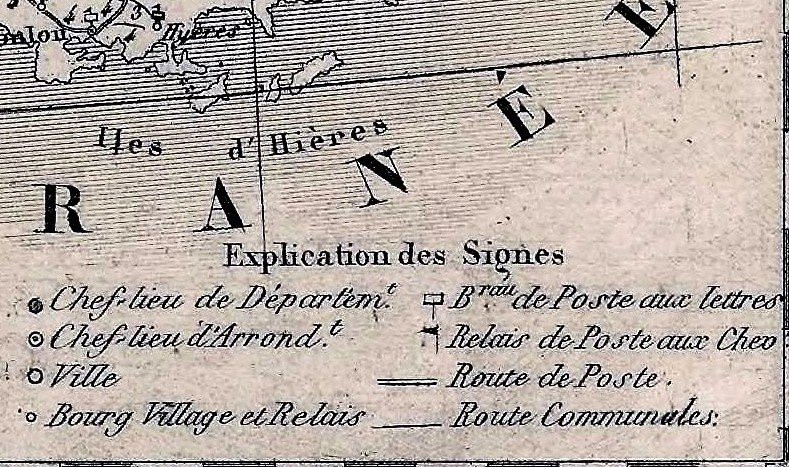 Hyères
Iles d'Hières
R A N É E
Explication des Signes
Chef-lieu de Départem.t
Chef-lieu d'Arrond.t
Ville
Bourg Village et Relais
Brau de Poste aux lettres
Relais de Poste aux Chev
Route de Poste.
Route Communales.